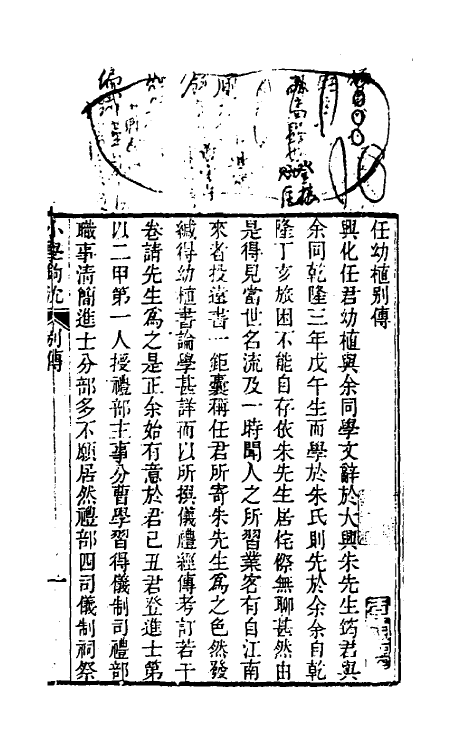 任幼植别傳
興化任君幼植與余同學文辭於大興朱先生筠君與
余同乾隆三年戊午生而學於朱氏則先於余余自乾
隆丁亥旅困不能自存依朱先生居侘傺無聊甚然由
是得見當世名流及一時聞人之所習業客有自江南
來者投遠書一鉅囊稱任君所寄朱先生爲之色然發
緘得幼植書論學甚詳而以所撰儀禮經傳考訂若干
卷請先生爲之是正余始有意於君己丑君登進士第
以二甲第一人授禮部主事分曹學習得儀制司禮部
職事清簡進士分部多不願居然禮部四司儀制祠祭
小學鉤沈
别傳
一